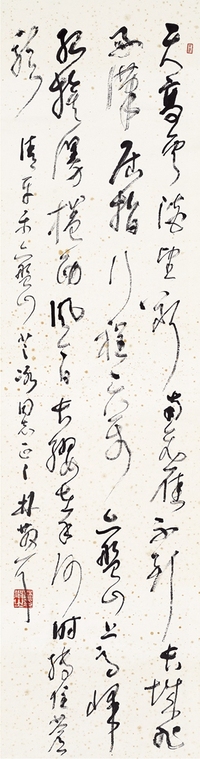 天高雲淡望斷南飛雁不到長城非
好漢屈指行程二萬六盤山上高峰
紅旗漫捲西風今日長纓在手何時縛住蒼
龍 清平乐六盤山 同志正之 林散耳